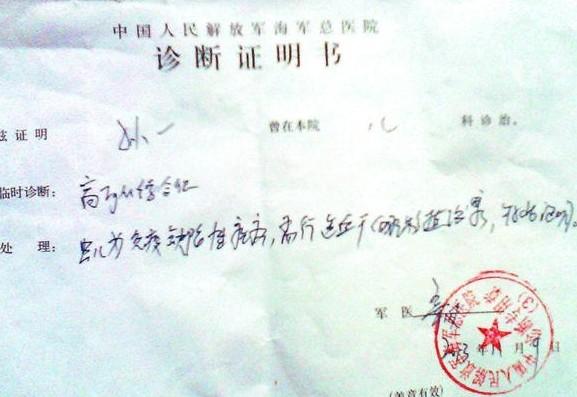 中国人民解放军海军总医院
诊断证明书
兹证明 孙一 曾在本院 儿 科诊治。
临时诊断: 高IgM综合征
处 理: 患儿为免疫缺陷性疾病,需行造血干细胞移植治疗,特此证明。
军医
2013年11月9日
(盖章有效)